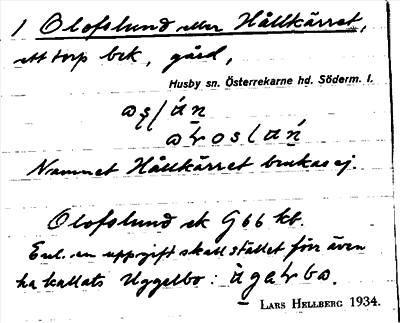 1 Olofslund eller Hålkärret,
ett torp bek, gård,
Husby sn. Österrekarne hd. Söderm. l.
Namnet Hålkärret brukas ej.
Olofslund ek G66 kt.
Enl. en uppgift skall stället förr även
ha kallats Uggelbo:
LARS HELLBERG 1934.